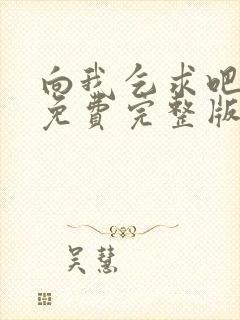 向我乞求吧
免费完整版
吴慧